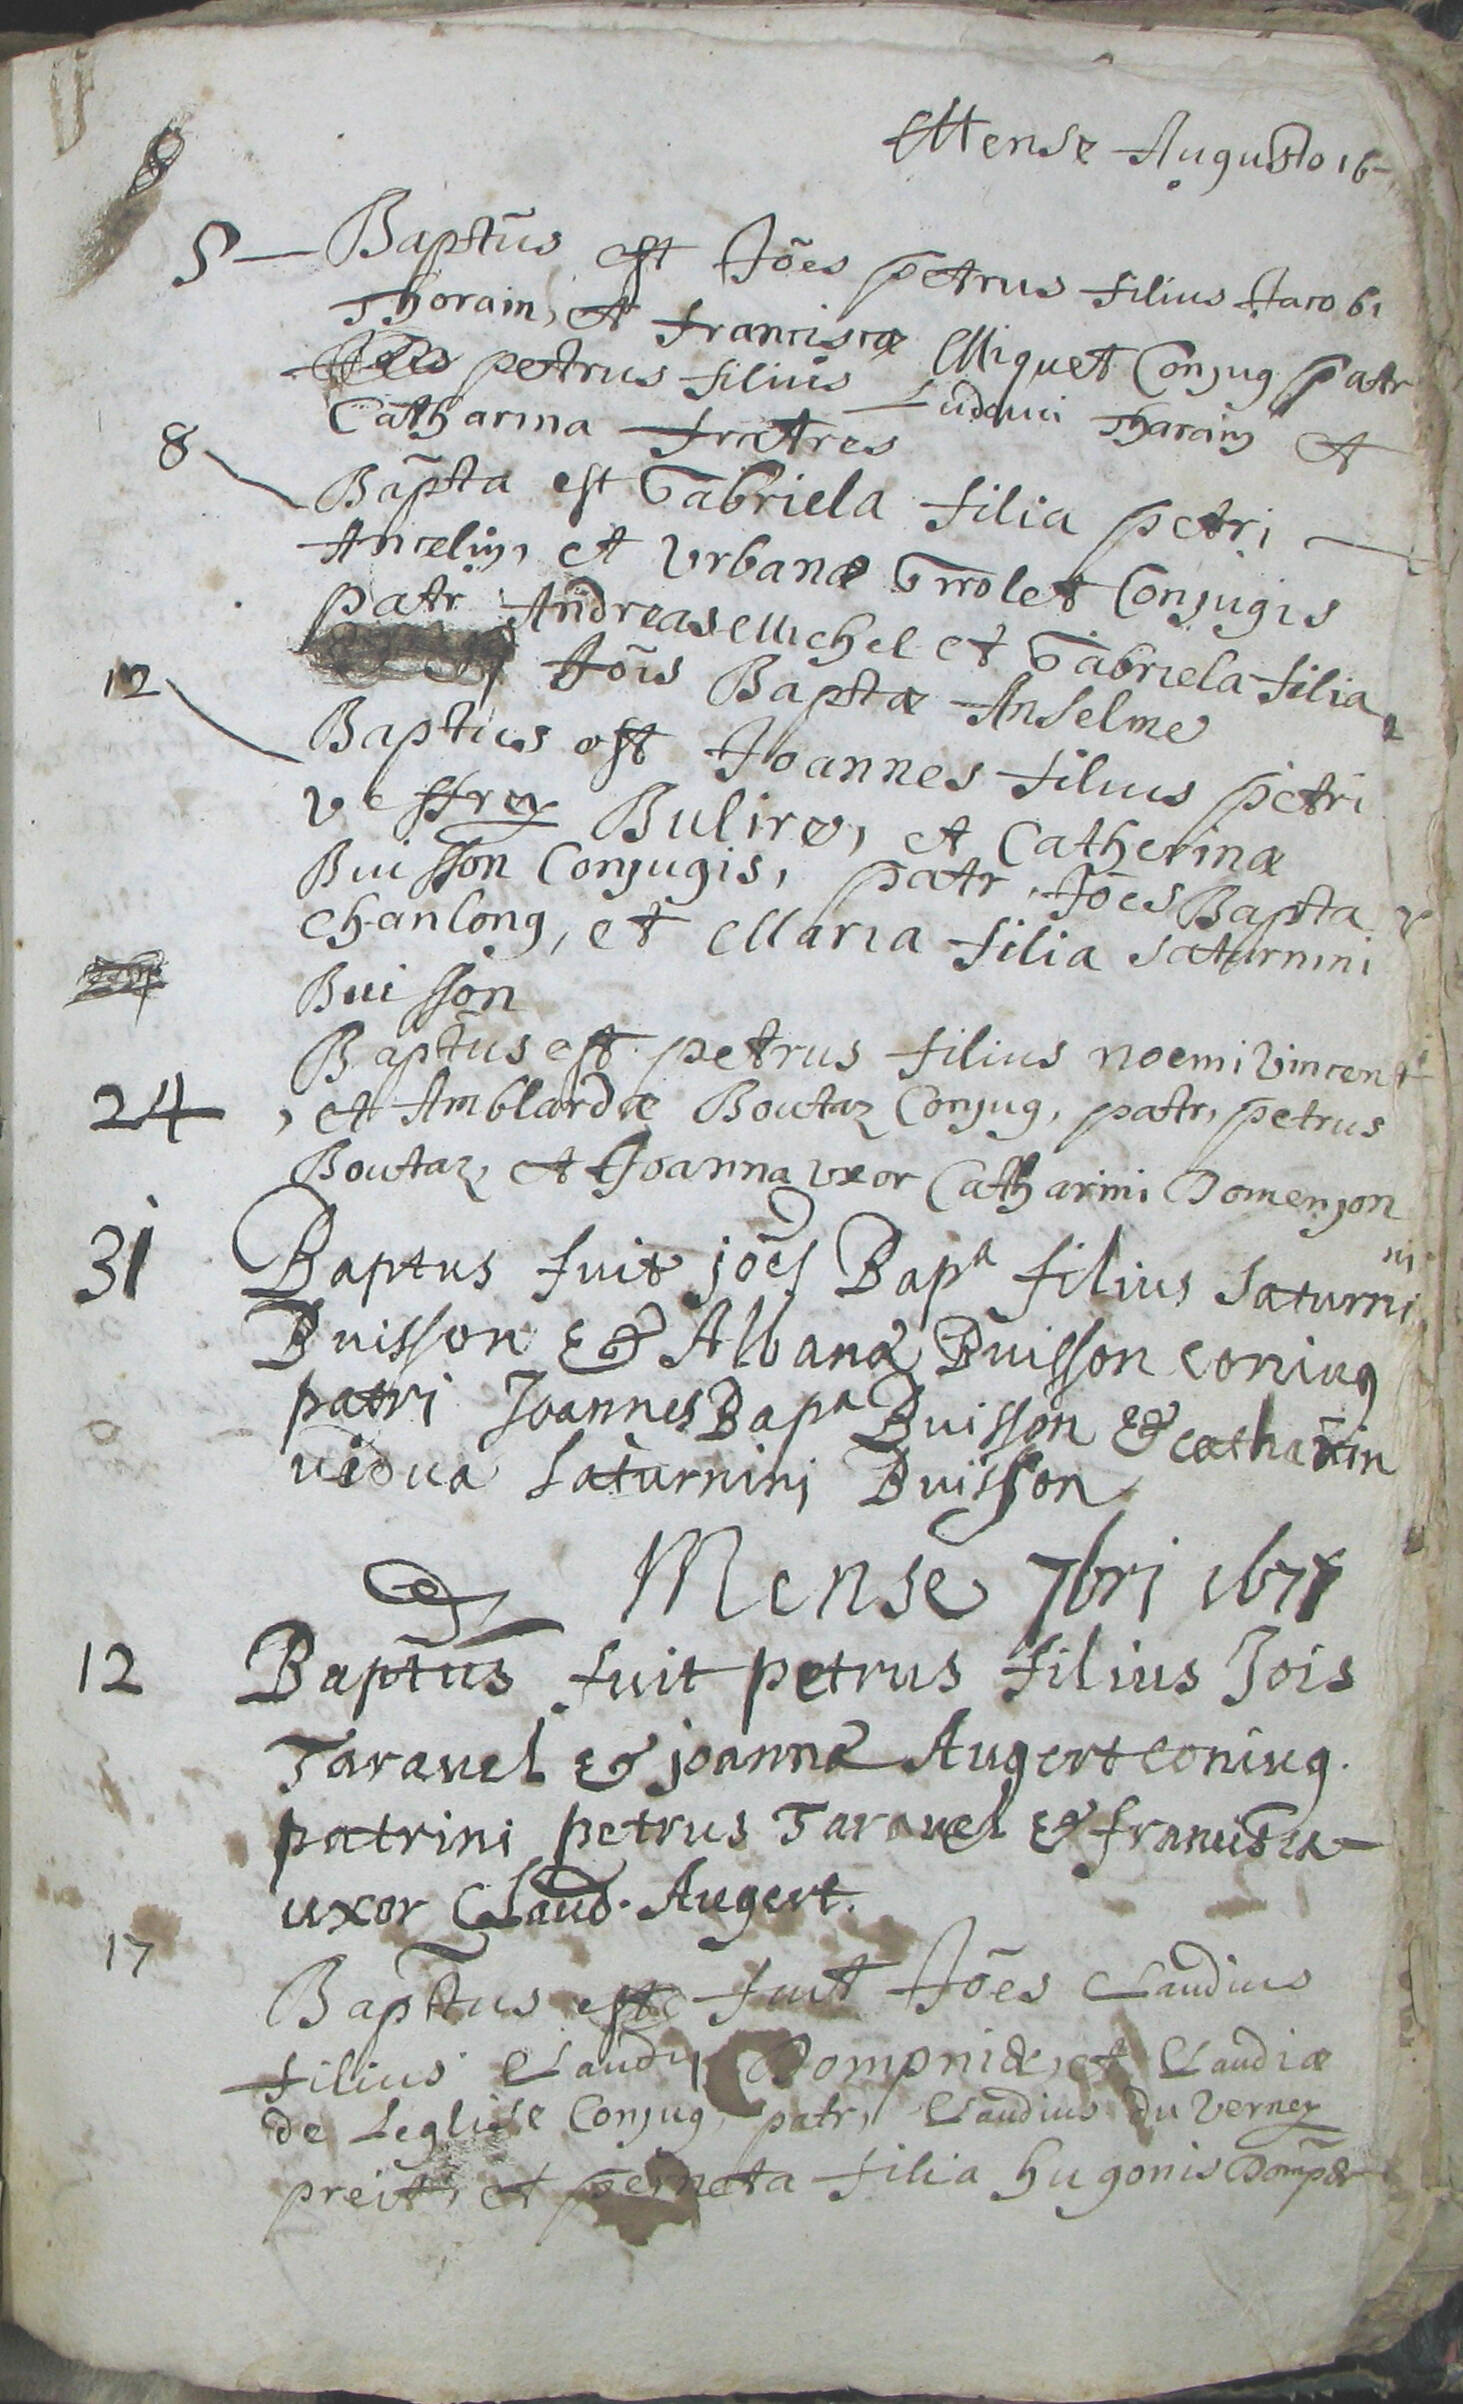 Mense Augusto 16
5 — Baptũs est Jões petrus filius Jacobi
Thorain, et franciscæ Miquet Conjug patr
petrus filius Ludovici Tharain et
Catharina fratres
8 Bãpta est Gabriela filia petri —
Ancelin, et Urbanæ Grolet Conjugis
patr Andreas Michel et Gabriela filia
Jõis Baptæ Anselme
12 Baptus est Joannes filius petri
Vessrey Bulire, et Catherinæ
Buisson Conjugis, patr, Jões Bapta
Chanlong, et Maria filia Saturnini
Buisson
Baptũs est petrus filius noemi Vincent
24 , et Amblardæ Boutaz Conjug, patr, petrus
Boutaz, et Joanna uxor Catharini Domenjon
31 Baptus fuit jões Bapᵃ filius Saturni ni
Buisson & Albanæ Buisson coniug
patri Joannes Bapᵃ Buisson & catharin
vidua Saturnini Buisson
Mense 7bri 1671
12 Baptũs fuit petrus filius Jois
Taravel & joannæ Augert coniug.
patrini petrus Taravel & francisca
uxor Claud. Augert.
17
Baptus est fuit Jões Claudius
filius Claudij Dompnié, et Claudiæ
de Leglise Conjug, patr, Claudius du Verney
et perneta filia hugonis